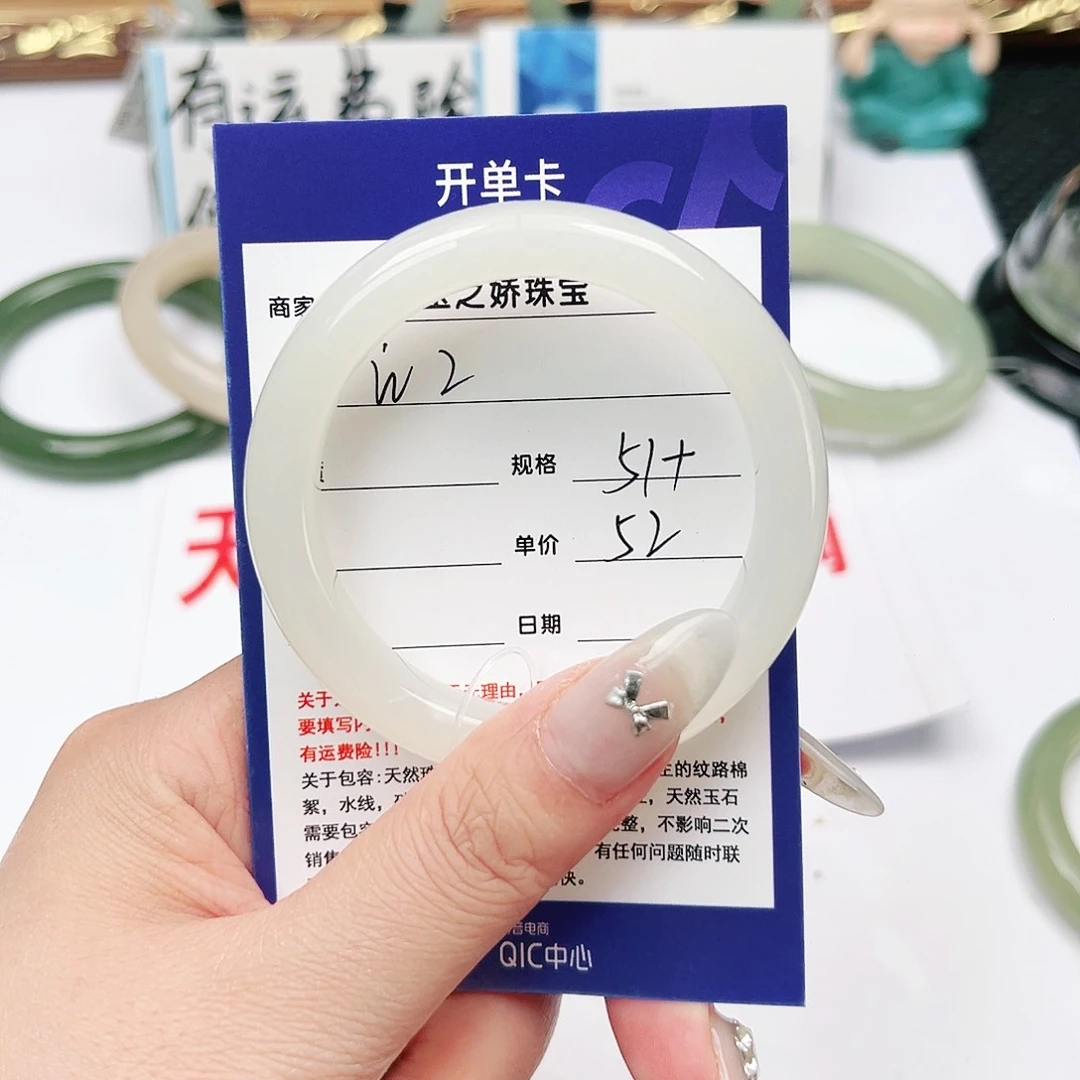 有运费险
开单卡
商家 之娇珠宝
W2
规格 51+
单价 52
日期
关于 理由,
要填写内
有运费险!!!
关于包容:天然珠 生的纹路棉
絮,水线, 天然玉石
需要包容 完整,不影响二次
销售 有任何问题随时联
快。
音电商
QIC中心
天